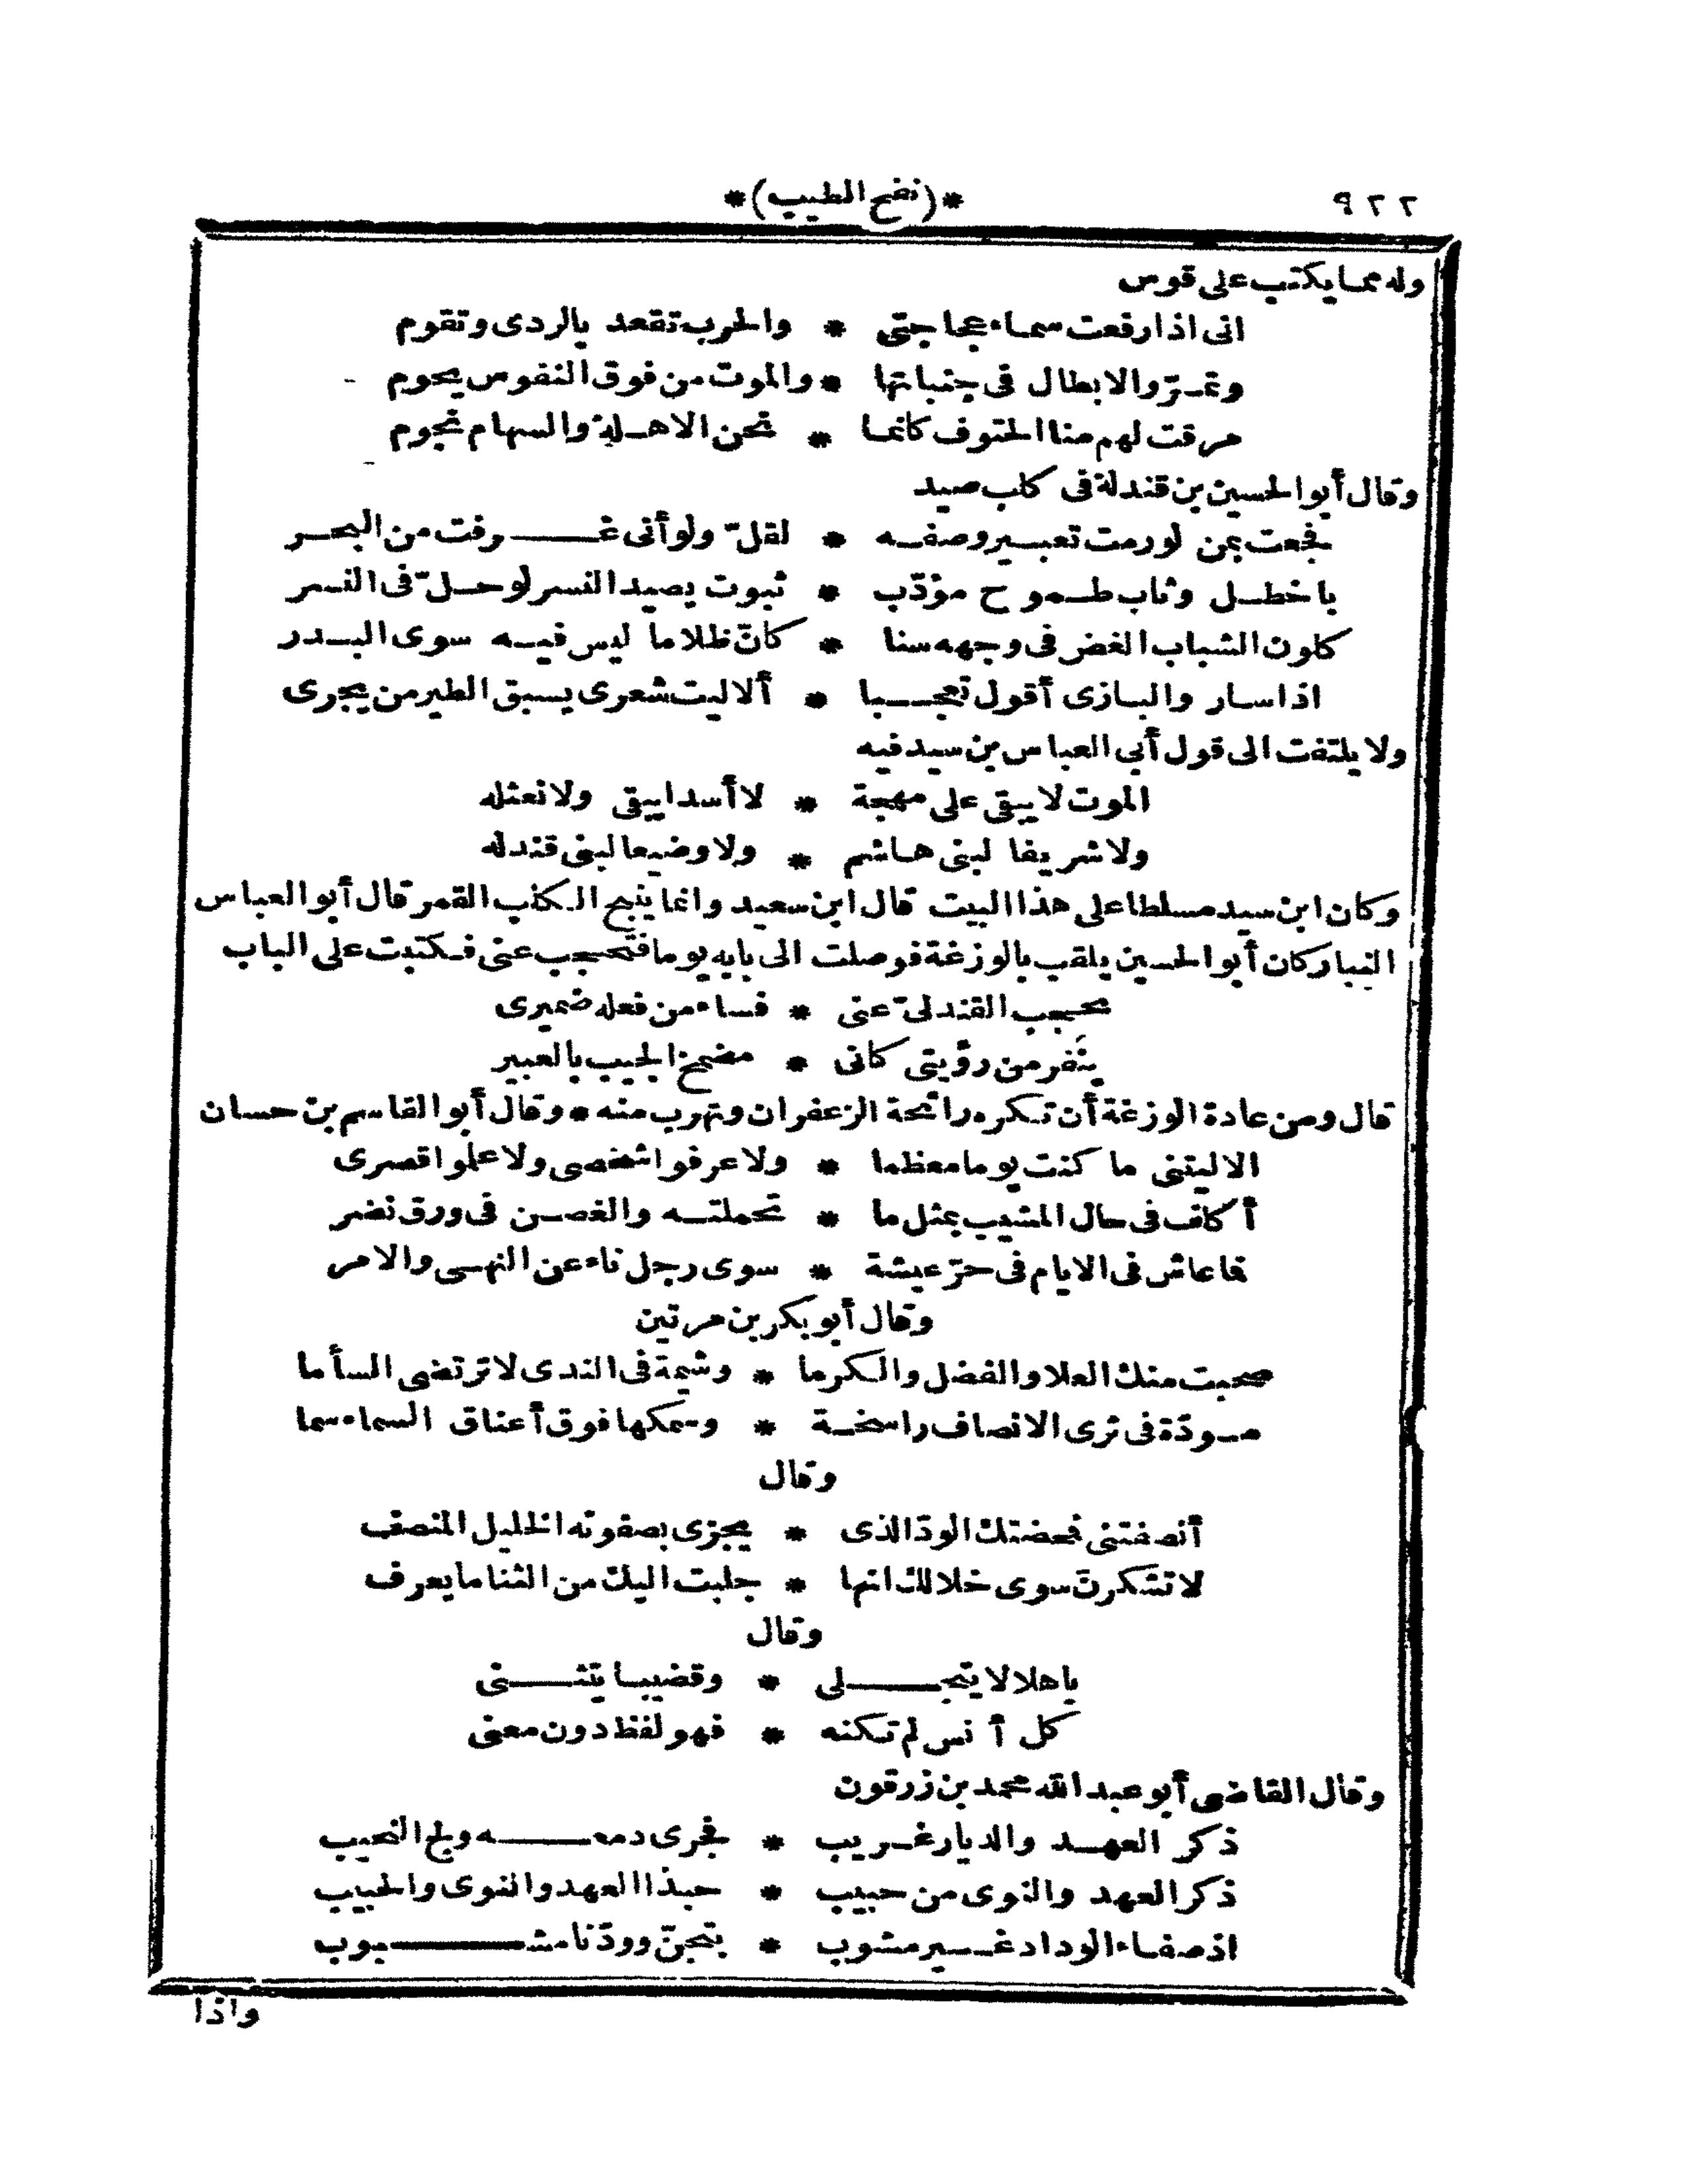 ٩٢٢
*(نفح الطيب)*
وله مما يكتب على قوس
انى اذا رفعت سماء عجاجتى * والحرب تقعد بالردى وتقوم
وتمرّ والابطال فى جنباتها * والموت من فوق النفوس يحوم
مرقت لهم منا الحتوف كانما * نحن الاهلة والسهام نجوم
وقال أبو الحسين بن قندلة فى كلب صيد
فجعت بمن لو رمت تعبير وصفه * لقلّ ولو أنى غرفت من البحر
باخطل وثاب طموح مؤدّب * ثبوت يصيد النسر لو حلّ فى النسر
كلون الشباب الغض فى وجهه سنا * كانّ ظلاما ليس فيه سوى البدر
اذا سار والبازى أقول تعجبا * ألا ليت شعرى يسبق الطير من يجرى
ولا يلتفت الى قول أبى العباس بن سيد فيه
الموت لا يبقى على مهجة * لا أسدا يبقى ولا نعثله
ولا شريفا لبنى هاشم * ولا وضيعا لبنى قندله
وكان ابن سيد مسلطا على هذا البيت قال ابن سعيد وانما ينبح الكلب القمر قال أبو العباس
النيار كان أبو الحسين يلقب بالوزغة فوصلت الى بابه يوما فتحجب عنى فكتبت على الباب
تحجب القندلىّ عنى * فساء من فعله ضميرى
ينفر من رؤيتى كانى * مضمخ الجيب بالعبير
قال ومن عادة الوزغة أن تكره رائحة الزعفران وتهرب منه * وقال أبو القاسم بن حسان
الا ليتنى ما كنت يوما معظما * ولا عرفوا شخصى ولا علموا قصرى
أكلف فى حال المشيب بمثل ما * تحملته والغصن فى ورق نضر
فما عاش فى الايام فى حرّ عيشة * سوى رجل ناء عن النهى والامر
وقال أبو بكر بن مرتين
صحبت منك العلا والفضل والكرما * وشيمة فى الندى لا ترتضى السأما
مودّة فى ثرى الانصاف راسخة * وسمكها فوق أعناق السماء سما
وقال
أنصفتنى فمحضتك الودّ الذى * يجزى بصفوته الخليل المنصف
لا تشكرنّ سوى خلالك انها * جلبت اليك من الثنا ما يعرف
وقال
يا هلالا يتجلى * وقضيبا يتثنى
كل أنس لم تكنه * فهو لفظ دون معنى
وقال القاضى أبو عبد الله محمد بن زرقون
ذكر العهد والديار غريب * فجرى دمعه ولج النحيب
ذكر العهد والنوى من حبيب * حبذا العهد والنوى والحبيب
اذ صفاء الوداد غير مشوب * بتجنّ وودّنا مشبوب
واذا